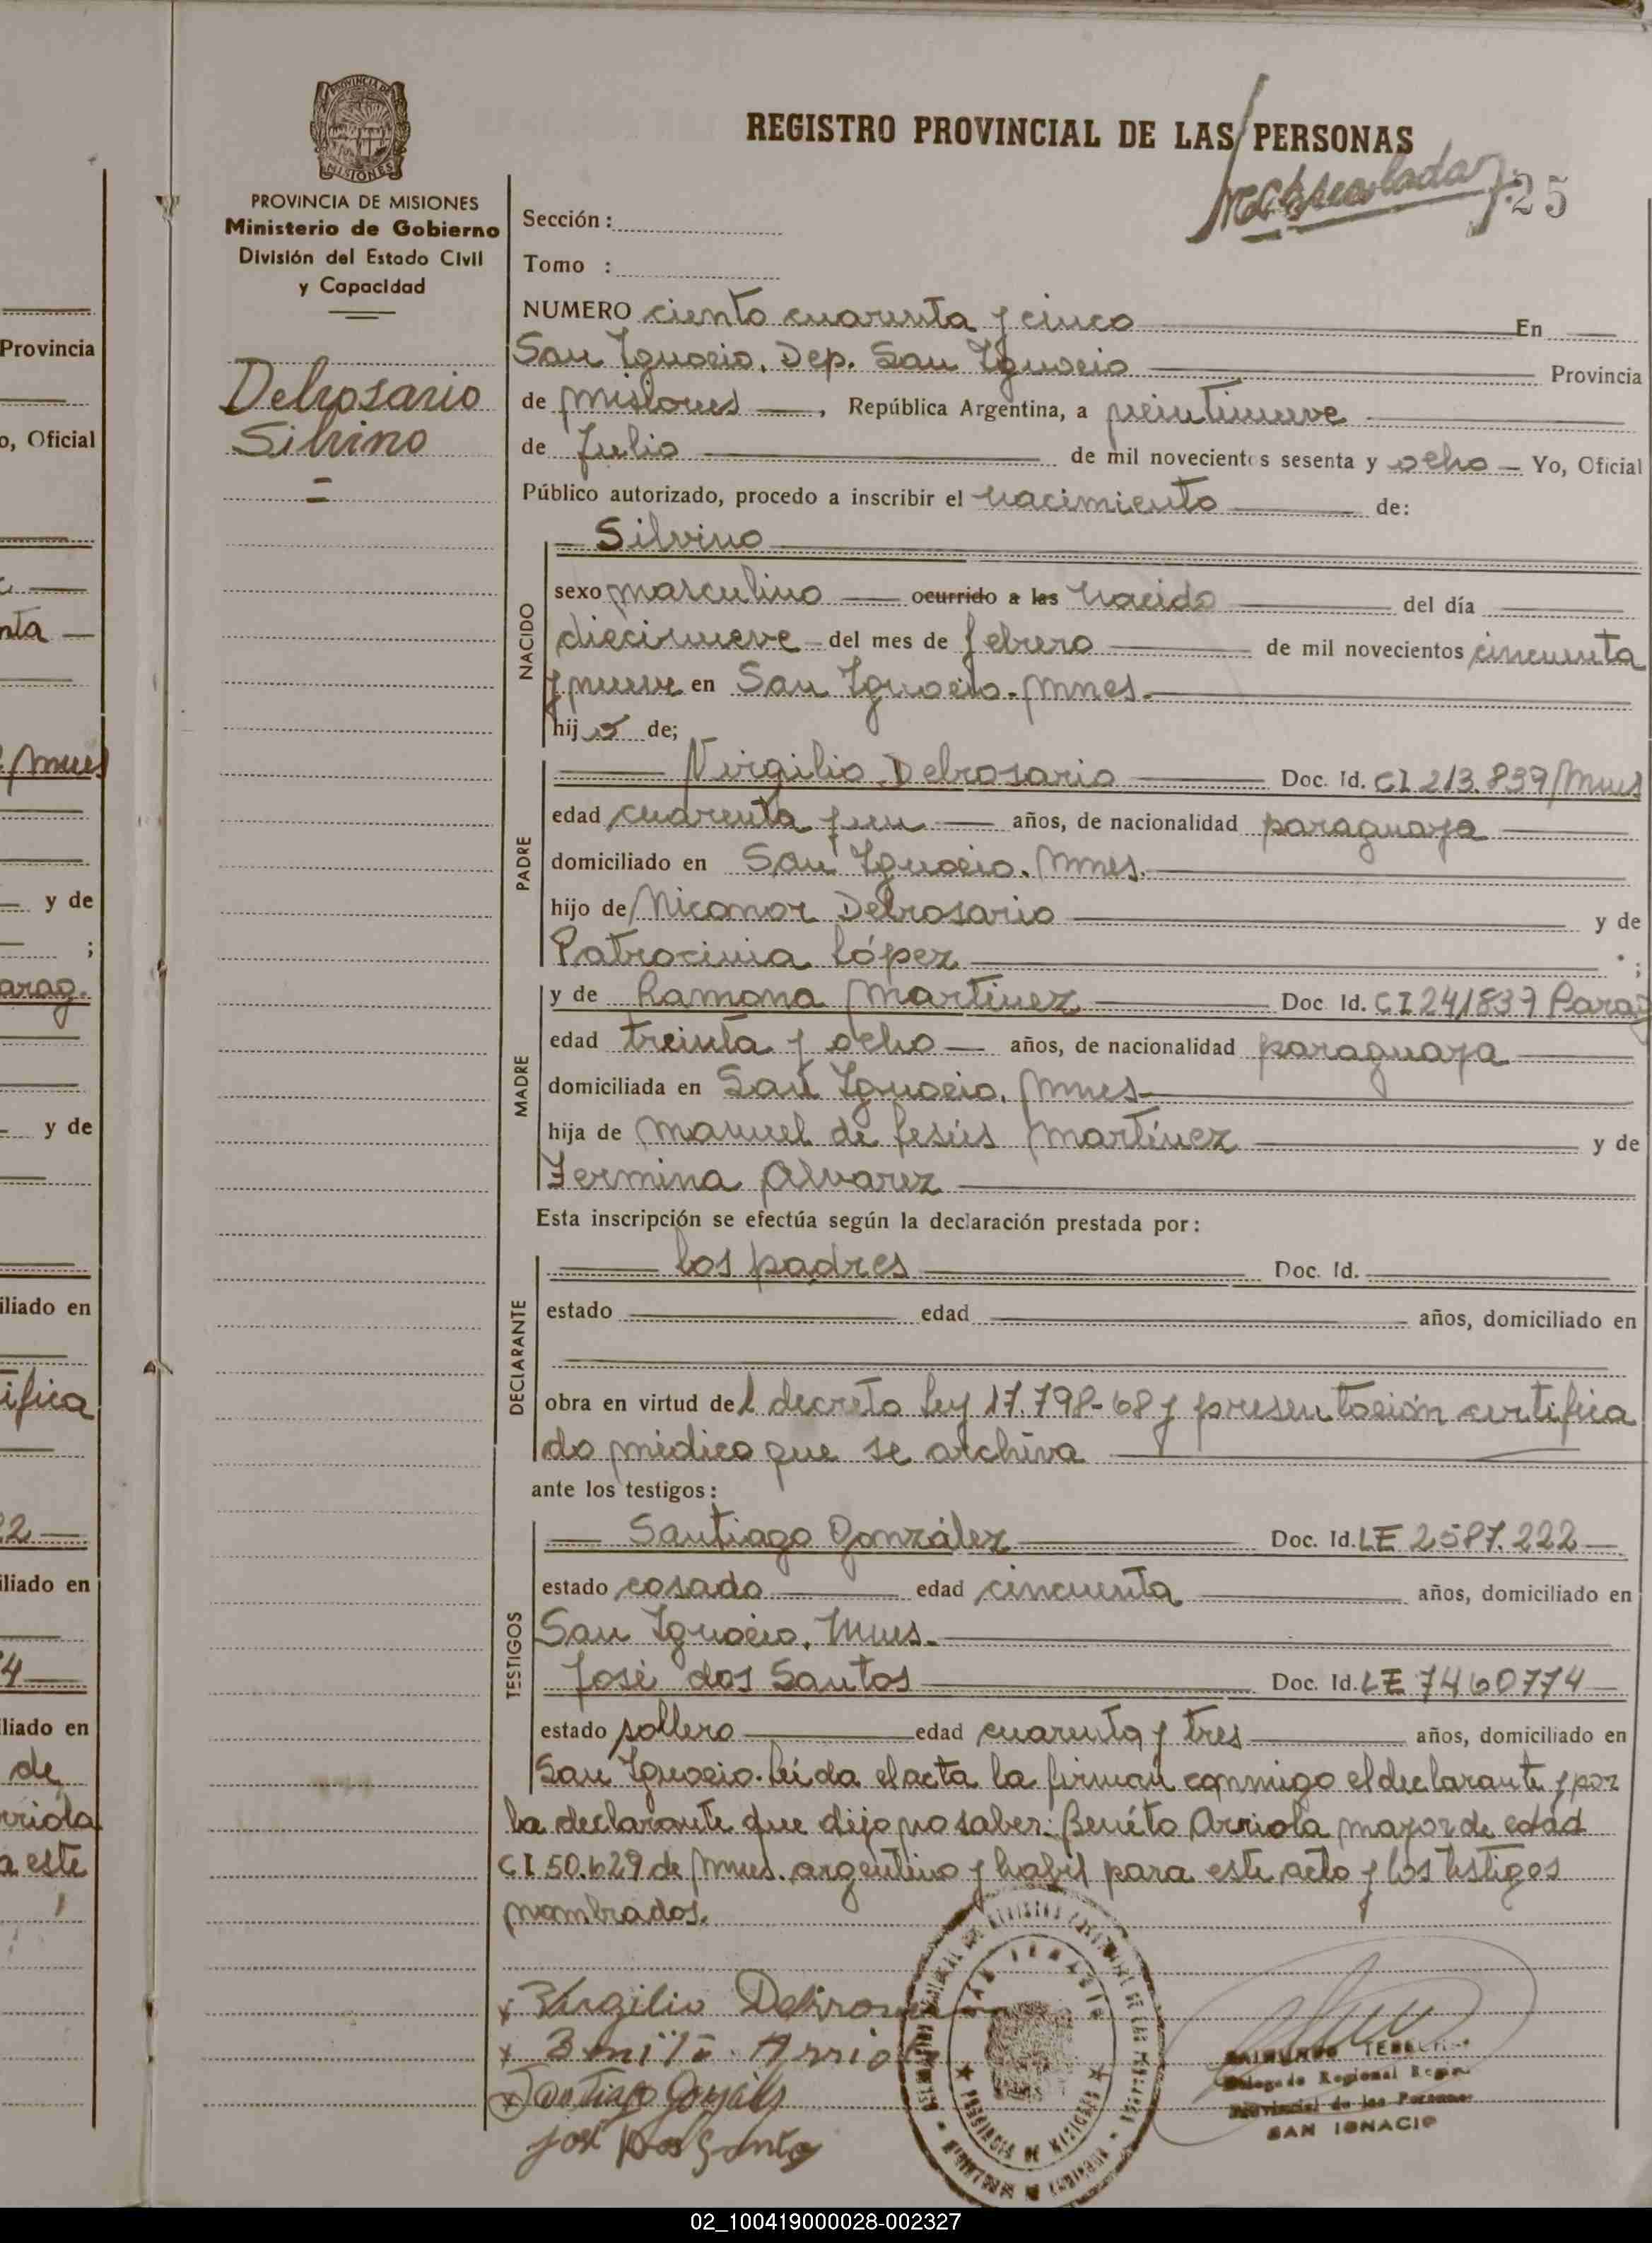 REGISTRO PROVINCIAL DE LAS PERSONAS
25
PROVINCIA DE MISIONES
Ministerio de Gobierno
División del Estado Civil
y Capacidad
Delrosario
Silvino
Sección:
Tomo :
NUMERO ciento cuarenta y cinco En
San Ignacio. Dep. San Ignacio Provincia
de Misiones, República Argentina, a veintinueve
de Julio de mil novecientos sesenta y ocho Yo, Oficial
Público autorizado, procedo a inscribir el nacimiento de:
Silvino
NACIDO
sexo masculino ocurrido a las nacido del día
diecinueve del mes de febrero de mil novecientos cincuenta
y nueve en San Ignacio. Mnes.
hijo de;
PADRE
Virgilio Delrosario Doc. Id. CI 213.837/Mnes
edad cuarenta y un años, de nacionalidad paraguaya
domiciliado en San Ignacio. Mnes.
hijo de Nicanor Delrosario y de
Patrocinia López ;
MADRE
y de Ramona Martinez Doc. Id. CI 241837 Parag
edad treinta y ocho años, de nacionalidad paraguaya
domiciliada en San Ignacio. Mnes.
hija de Manuel de Jesús Martínez y de
Fermina Alvarez
Esta inscripción se efectúa según la declaración prestada por:
DECLARANTE
los padres Doc. Id.
estado edad años, domiciliado en
obra en virtud del decreto ley 17.798-68 y presentación certifica
do médico que se archiva
ante los testigos:
TESTIGOS
Santiago González Doc. Id. LE 2587.222
estado casado edad cincuenta años, domiciliado en
San Ignacio. Mnes.
José dos Santos Doc. Id. LE 7460774
estado soltero edad cuarenta y tres años, domiciliado en
San Ignacio. Leída el acta la firman conmigo el declarante y por
la declarante que dijo no saber: Benito Arriola mayor de edad
CI 50.629 de Mnes. argentino y habil para este acto y los testigos
nombrados.
Virgilio
Santiago
José Dos Santos
Delegado Regional
Provincial de las Personas
SAN IGNACIO
SAN IGNACIO
PROVINCIA DE MISIONES
Provincia
o, Oficial
nta
Mnes
y de
;
arag.
y de
iliado en
ifica
22
iliado en
4
liado en
de
rriola
a este
02_100419000028-002327